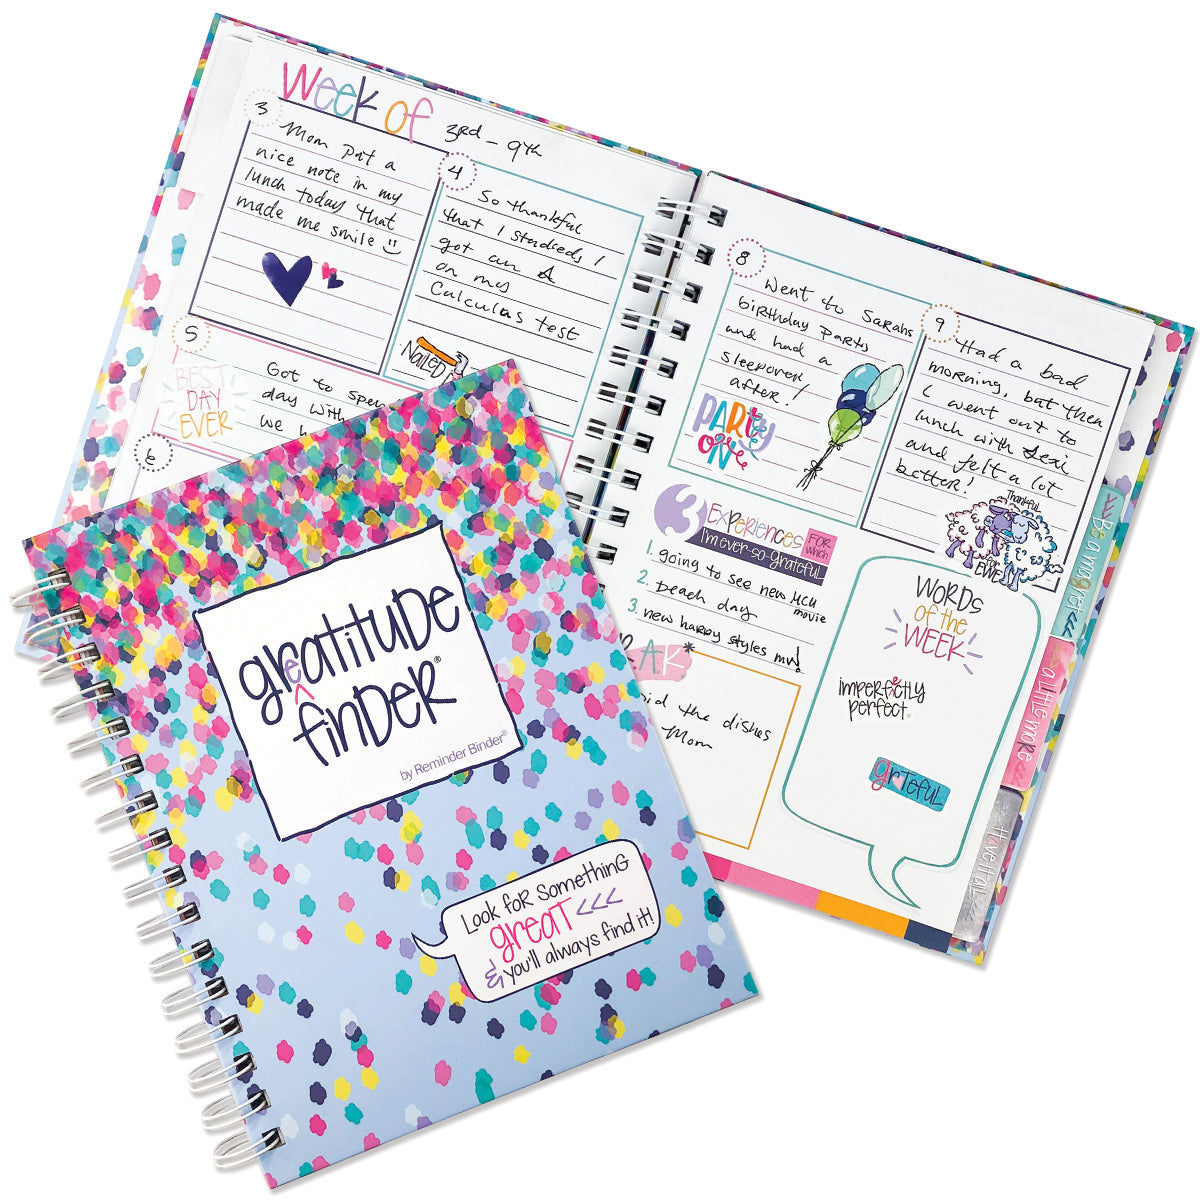 Week of 3rd - 9th
3
Mom put a
nice note in my
lunch today that
made me smile
4
So thankful
that I studied I
got an A
on my
Calculas test
NaiLED
5
BEST
DAY
EVER
Got to
day with
we
6
8
Went to Sarahs
birthday party
and had a
sleepover
after!
PARTY
ON
9
Had a bad
morning, but then
I went out to
lunch with
and felt a lot
better!
Thankful
FOR
EWE
3 EXPERIENCES FOR which
I'm EVER-SO-GRATEFUL
1. going to see new MCU
movie
2. Beach day
3. new harry styles mv!
the dishes
Mom
WORDS
of the
WEEK
imperfectly
perfect
grateful
Be a magnet <<<
a little more
Have it all
greatitude
finder®
by Reminder Binder®
Look for something
great <<<
& you'll always find it!